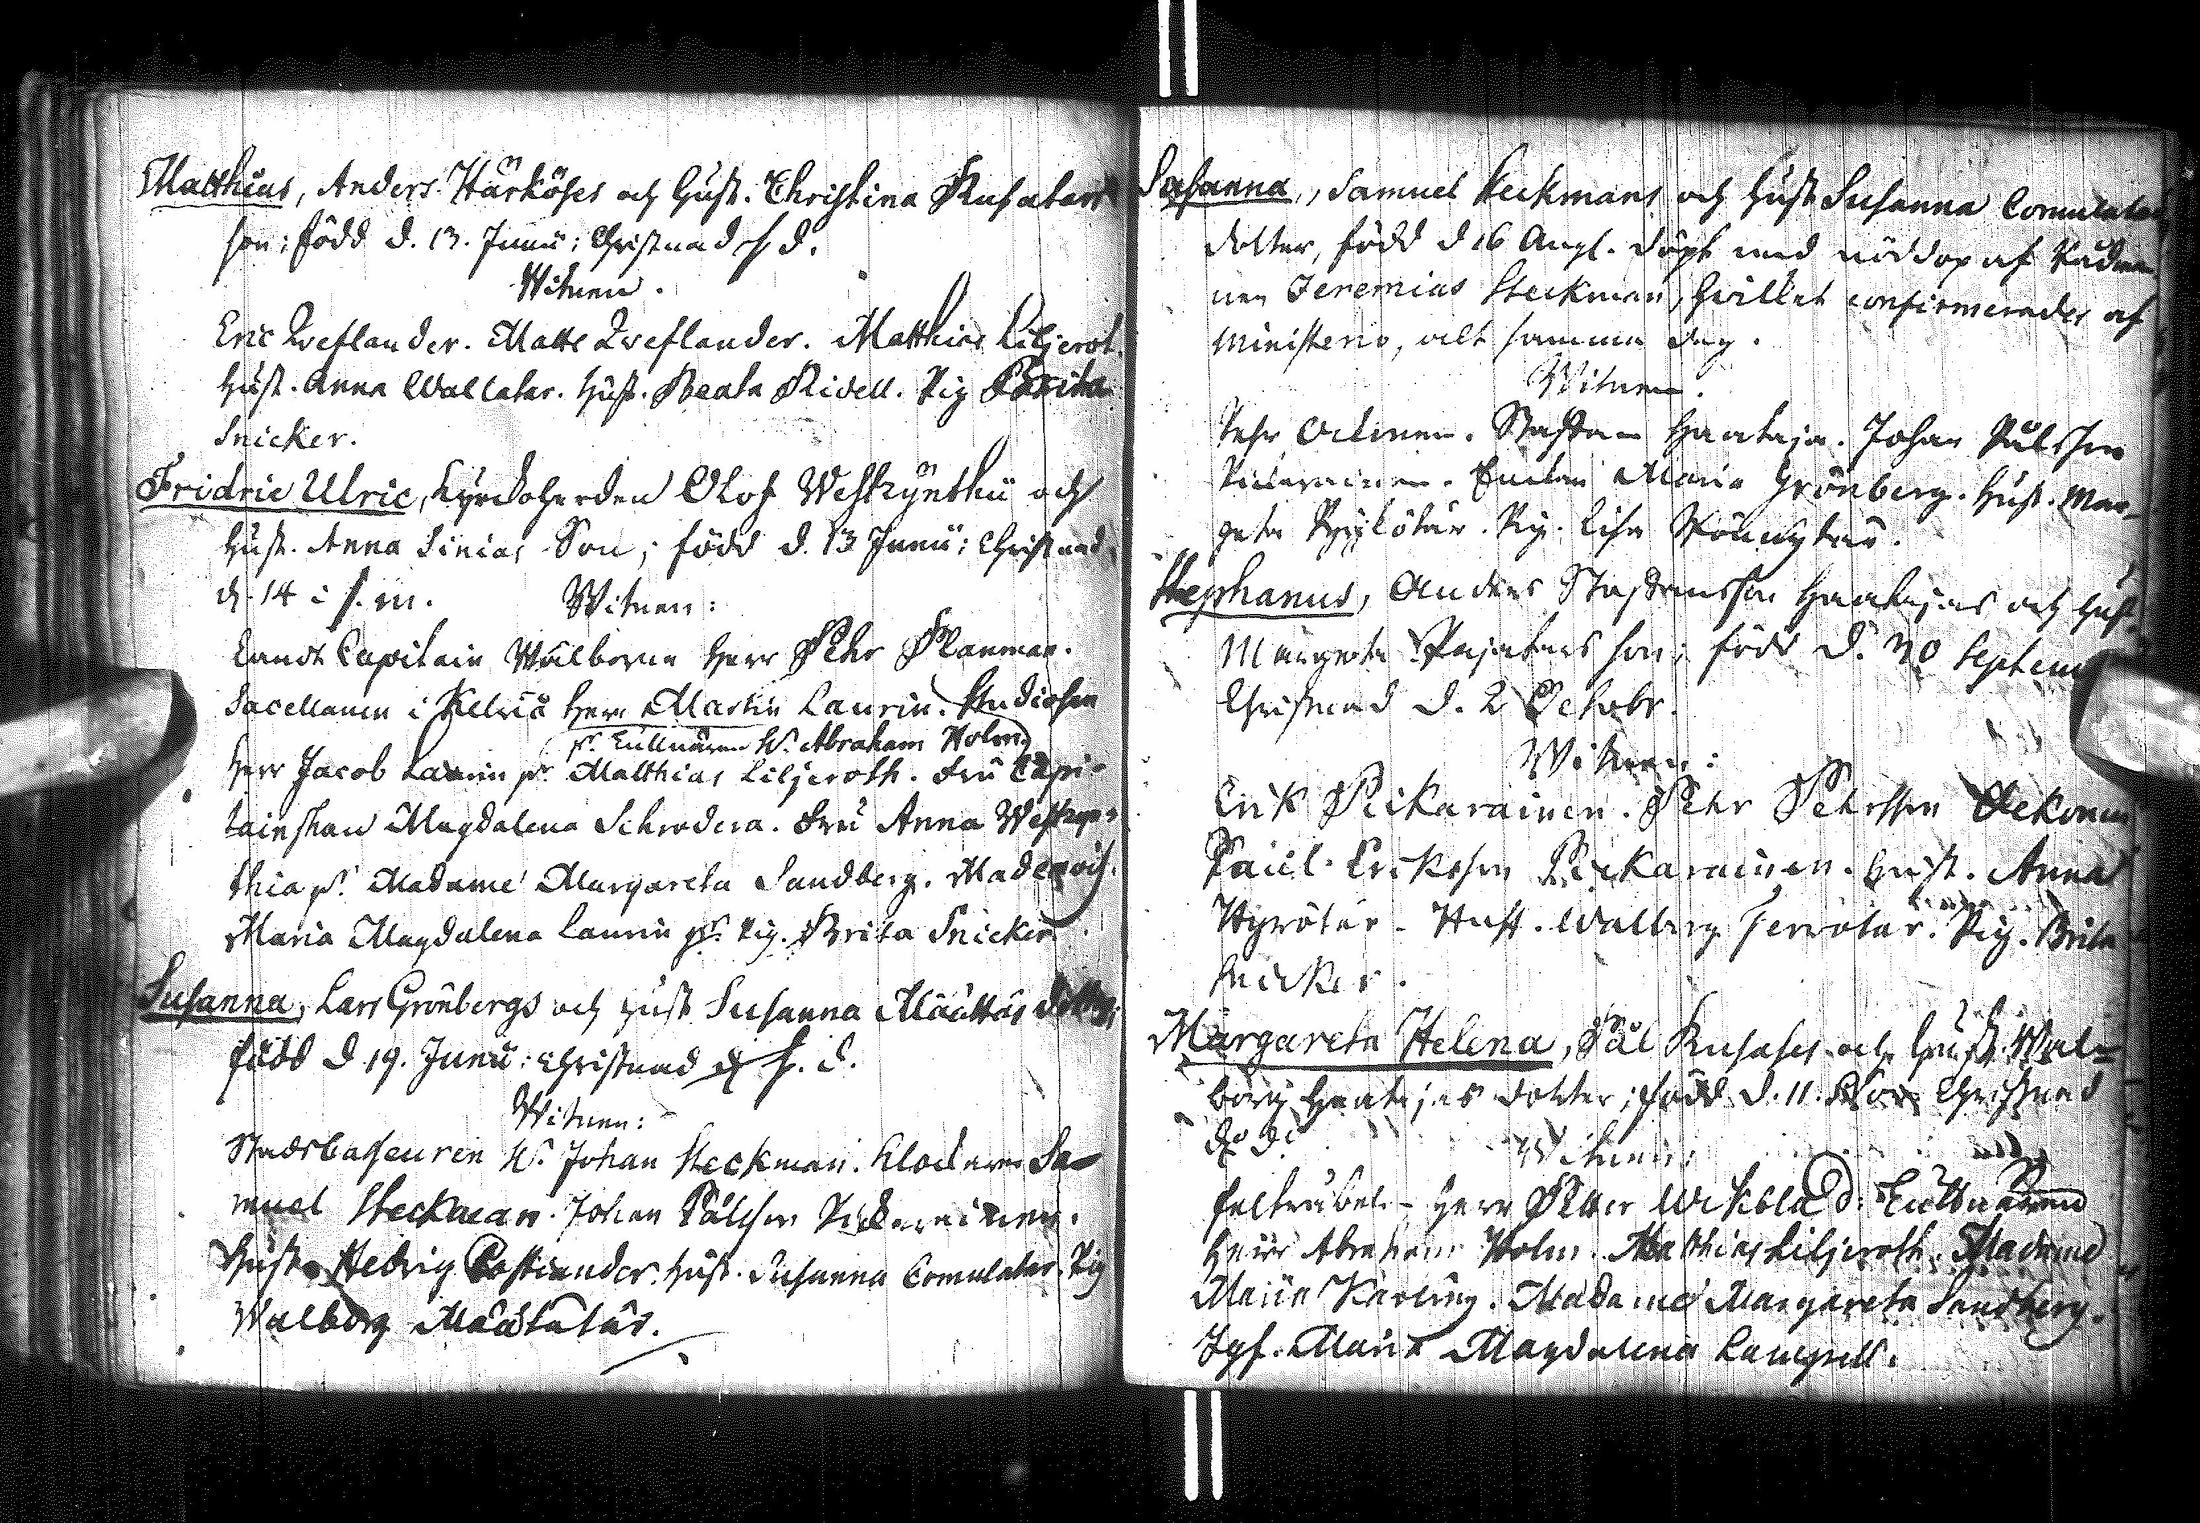 Matthias, Anders Härkönes och Hust. Christina Rusatars
son; född d. 13. Junii; Christnad s d.
Witnen.
Eric Zreflander. Matts Zreflander. Matthias Liljerot.
Hust. Anna Wallatar. Hust. Beata Ridell. Pig Brita
Snicker.
Fridric Ulric, Kyrckoherden Olof Westzynthii och
Hust. Anna Sinias Son; född d. 13 Junii; Christnad
d. 14 i s. m. Witnen:
Landt Capitain Wälborne Herr Petr Planman.
Sacellanen i Herr Martin Laurin. Studiosen
Hr. Abraham Holm
Herr Jacob Laurin pt. Matthias Liljeroth. Fru Capi-
tainskan Magdalena Schrodera. Fru Anna Westzyn-
thia pt. Madame Margareta Sandberg. Madmois.
Maria Magdalena Laurin pt. Pig. Brita Snicker.
Susanna, Lars Grönbergs och Hust Susanna Määttäs dotter;
född d 19. Junii: Christnad s. d.
Witnen:
Stadscasseuren Hr. Johan Steckman. Klockaren Sa-
muel Steckman. Johan Pålsson
Hust. Hedvig Castrander. Hust. Susanna Comulatar. Pig
Walborg Määtätär.
Susanna, Samuel Steckmans och Hust Susanna Comulatar
dotter, född d 16 Augl. döpt med nöddop af Rådman-
nen Jeremias Steckman, hvilket confirmerades af
Ministerio, alt samma dag.
Witnen.
Pehr Staffan Haataja. Johan Pålsson
Enckan Maria Grönberg. Hust. Mar-
geta Pig. Lisa
Stephanus, Anders Staffansson Haatajas och Hust.
Margeta son; född d. 30 Septem
Christnad d. 2 Octobr.
Witnen:
Erik Pikarainen. Petr Petersson
Påul Eriksson Pikarainen. Hust. Anna
Hust. Walborg Pig. Brita
Snicker.
Margareta Helena, Pål Rusases och Hust. Wal=
borg Haatajas dotter; född d. 11. Nov. Christnad
d:o d:
Witnen:
Herr Petter Wikblad.
Herr Abraham Holm. Matthias Liljeroth. Madame
Maria Karling. Madame Margareta Sandberg.
Jgf. Maria Magdalena